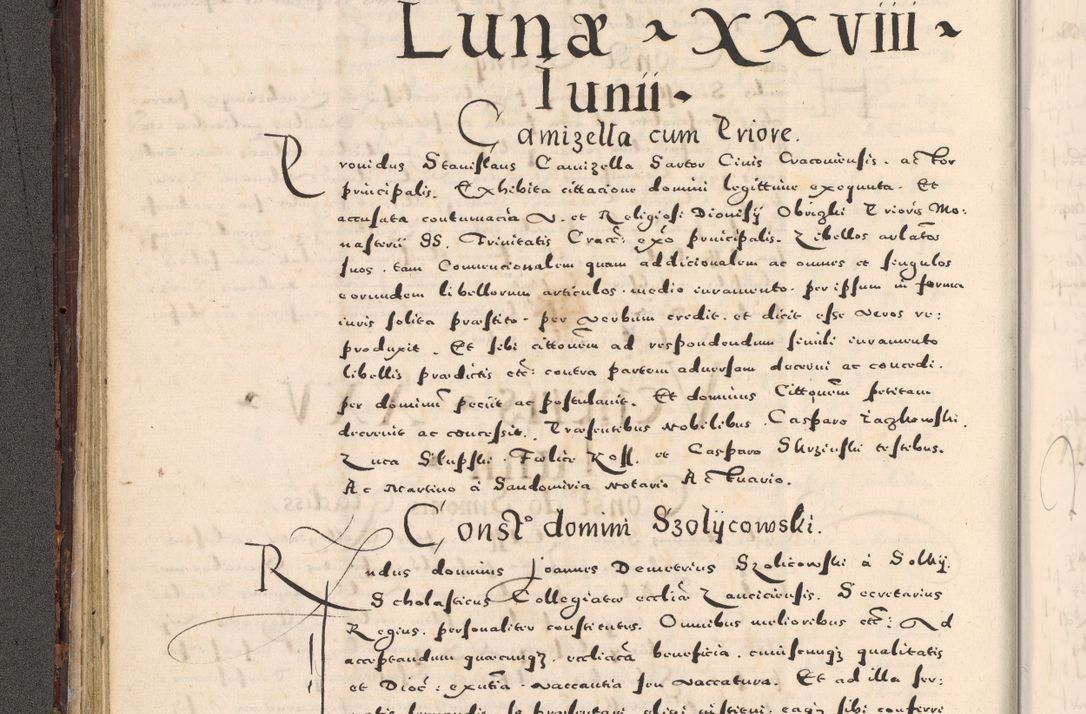 Lunæ ~ XXVIII ~
Iunii ~
Camizella cum Priore.
Prouidus Stanislaus Camizella Sartor Ciuis Cracouiensis. actor
principalis. Exhibita cittacione domini legittime exequuta. Et
accusata contumacia V. et Religiosi Dionisÿ Obrezki Prioris Mo:
nasterii SS. Trinitatis Cracc: ex̃o principalis. Libellos arlatos
suos. tam Conuencionalem quam addicionalem ac omnes et singulos
eorundem libellorum articulos. medio iuramento. per ipsum in forma
iuris solita præstito. per verbum credit. et dicit esse veros re:
produxit. Et sibi cittoñem ad respondendum simili iuramento
libellis prædictis etc: contra partem aduersam decerni ac concedi.
per dominum peciit ac postulauit. Et dominus Cittoñem petitam
decreuit ac concessit. Præsentibus Nobilibus. Casparo
Luca Slupski. et Casparo Skrzinski testibus.
Ac Martino à Sandomiria Notario Actuario.
Const° domini Szolÿcowski.
Rndus dominus Joannes Demetrius Szolicowski à
Scholasticus Collegiatæ eccliæ Lanciciensis. Secretarius
Regius. personaliter constitutus. Omnibus melioribus etc: Ad
acceptandum quæcunqꝫ. eccliacã beneficia. cuiuscunqꝫ qualitatis
et Dioc: exñtia. vaccantia seu vaccatura. Et ad illa se: